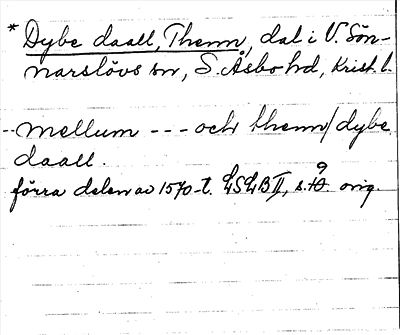 * Dybe daall, Themn, dal i V. Sön-
narslövs sn, S. Åsbo hd, Krist. l.
-- mellum --- och themn/dybe
daall.
förra delen av 1570-t. LSLB II, s. 9. orig.